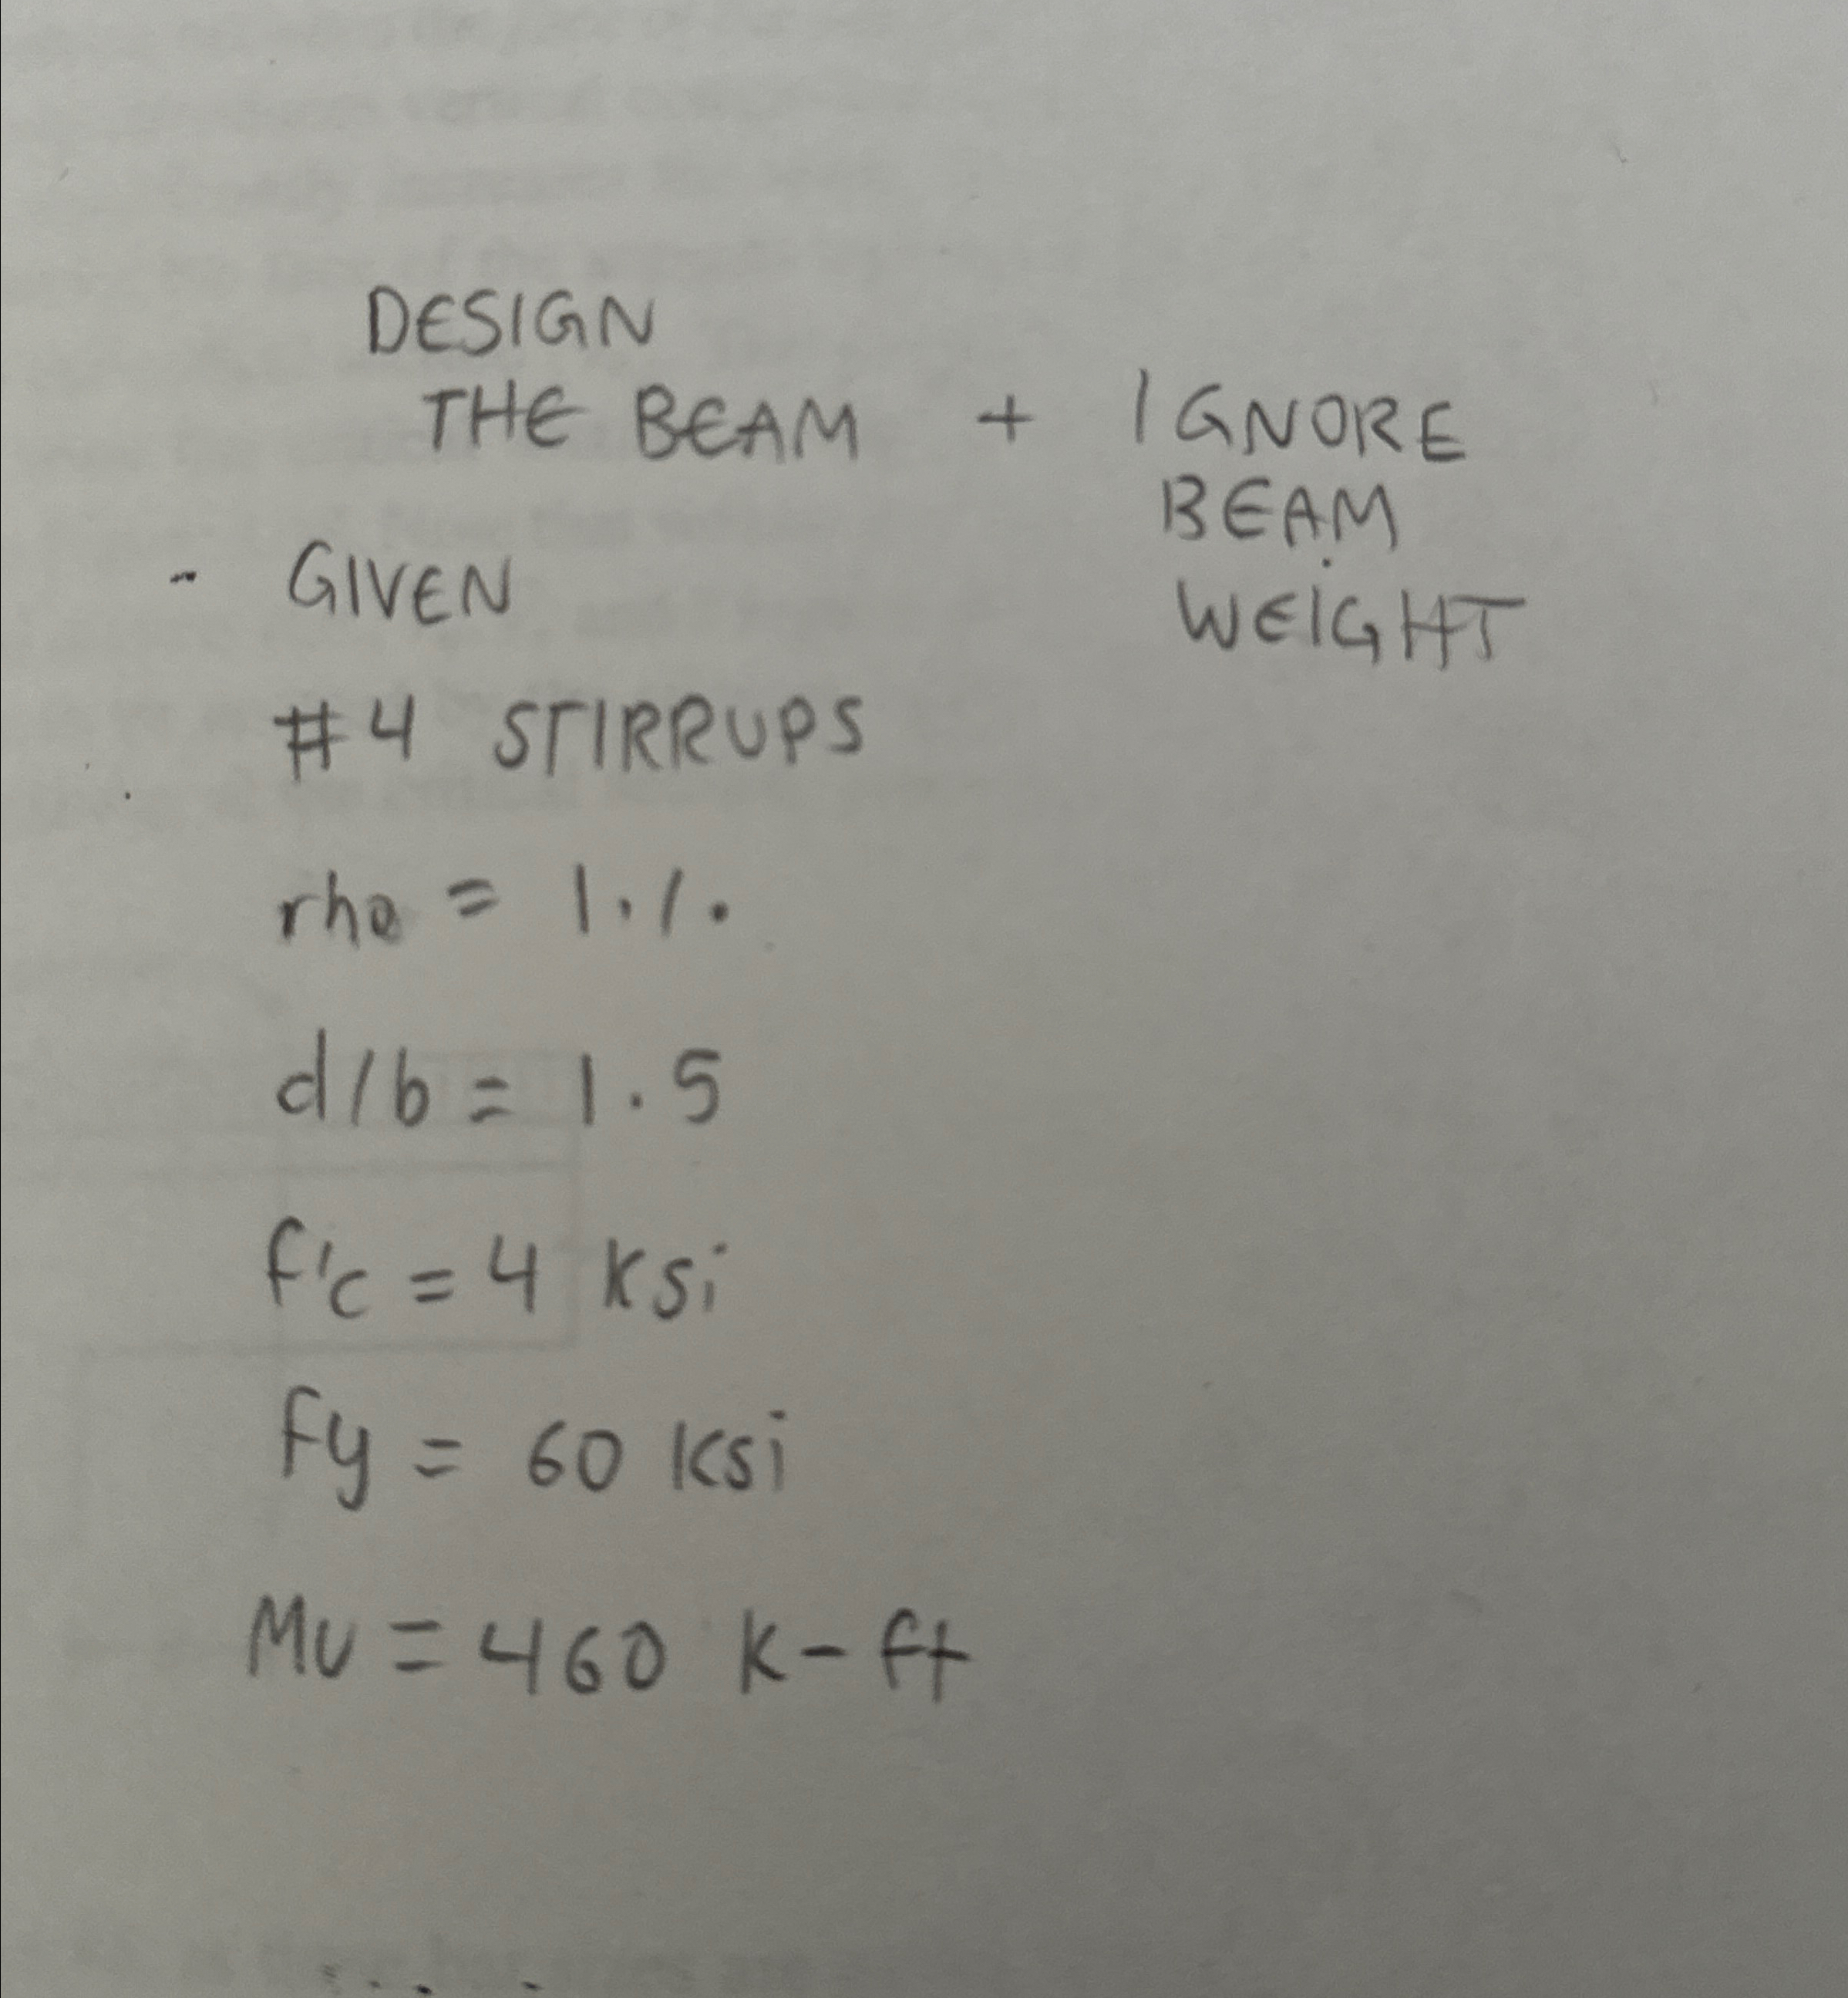 DESIGN
THE BEAM + IGNORE
BEAM
WEIGHT
- GIVEN
#4 STIRRUPS
rho = 1·/·
d/b = 1.5
f'c = 4 ksi
fy = 60 ksi
Mu = 460 k-ft